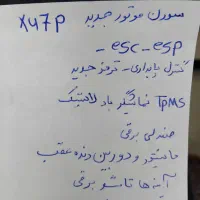 سورن موتور جدید X47P
esc - esp -
کنترل پایداری - ترمز جدید
TPMS نمایشگر باد لاستیک
صندلی برقی
مانیتور و دوربین دنده عقب
آینه‌ها تاشو برقی